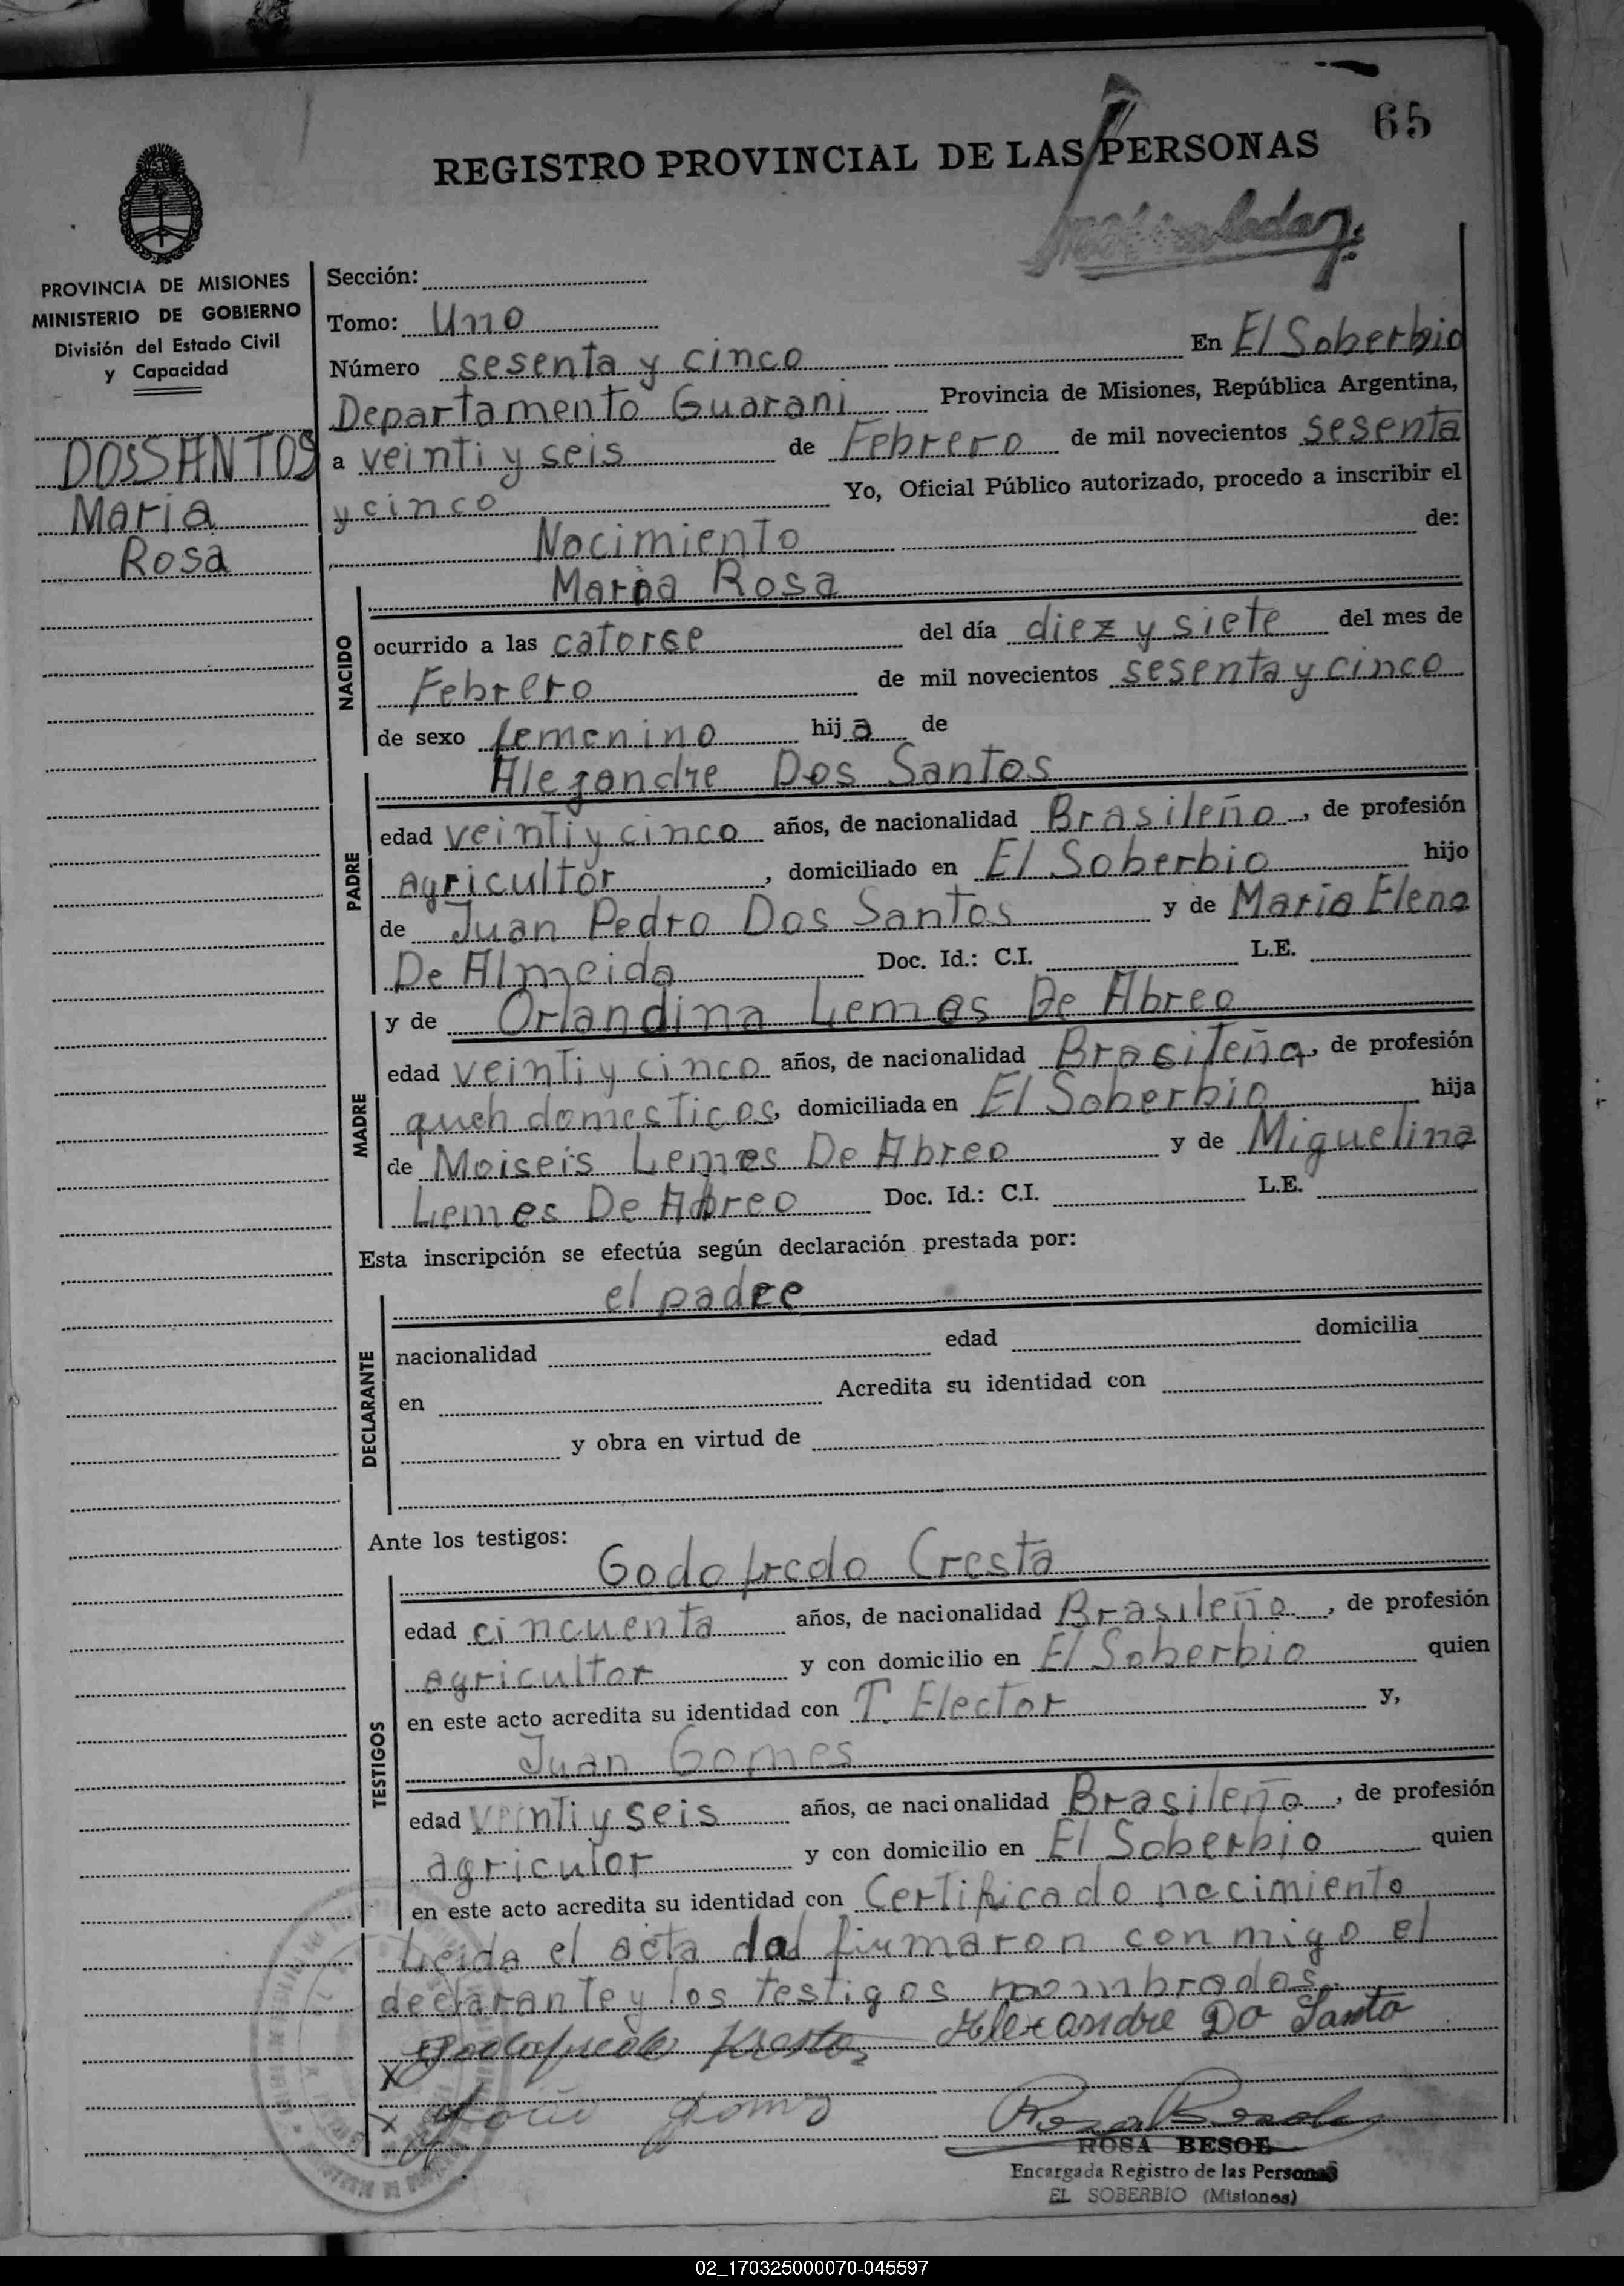 65
REGISTRO PROVINCIAL DE LAS PERSONAS
PROVINCIA DE MISIONES
MINISTERIO DE GOBIERNO
División del Estado Civil
y Capacidad
DOSSANTOS
Maria
Rosa
Sección:
Tomo: Uno
Número sesenta y cinco En El Soberbio
Departamento Guarani Provincia de Misiones, República Argentina,
a veinti y seis de Febrero de mil novecientos sesenta
y cinco Yo, Oficial Público autorizado, procedo a inscribir el
Nacimiento de:
NACIDO
Maria Rosa
ocurrido a las catorse del día diez y siete del mes de
Febrero de mil novecientos sesenta y cinco
de sexo femenino hija de
PADRE
Alejandre Dos Santos
edad veinti y cinco años, de nacionalidad Brasileño, de profesión
agricultor, domiciliado en El Soberbio hijo
de Juan Pedro Dos Santos y de Maria Elena
De Almeida Doc. Id.: C.I. L.E.
MADRE
y de Orlandina Lemes De Abreo
edad veinti y cinco años, de nacionalidad Brasileña, de profesión
queh domesticos, domiciliada en El Soberbio hija
de Moiseis Lemes De Abreo y de Miguelina
Lemes De Abreo Doc. Id.: C.I. L.E.
Esta inscripción se efectúa según declaración prestada por:
DECLARANTE
el padre
nacionalidad edad domicilia
en Acredita su identidad con
y obra en virtud de
Ante los testigos:
TESTIGOS
Godofredo Cresta
edad cincuenta años, de nacionalidad Brasileño, de profesión
agricultor y con domicilio en El Soberbio quien
en este acto acredita su identidad con T. Elector y,
Juan Gomes
edad veinti y seis años, de nacionalidad Brasileño, de profesión
agriculor y con domicilio en El Soberbio quien
en este acto acredita su identidad con Certificado nacimiento
Leida el acta firmaron con migo el
declarante y los testigos nombrados.
Alexandre Do Santo
ROSA BESOL
Encargada Registro de las Personas
EL SOBERBIO (Misiones)
02_170325000070-045597